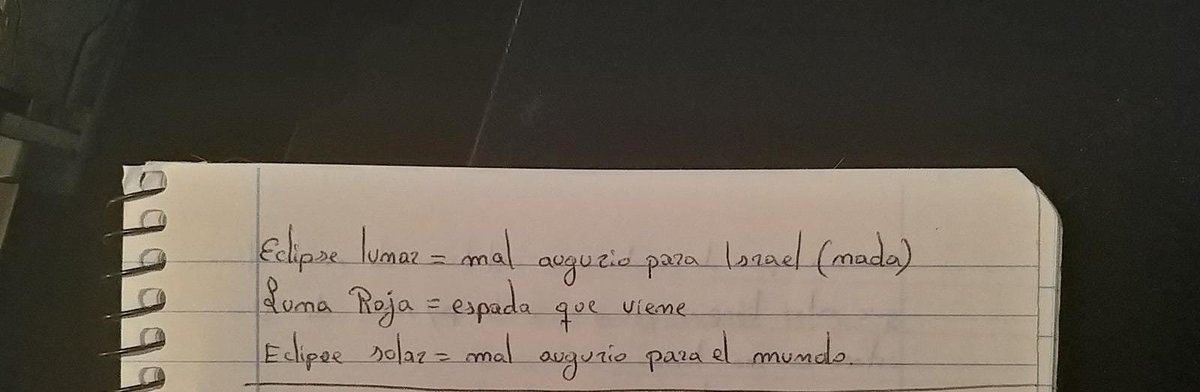 Eclipse lunar = mal augurio para Israel (nada)
Luna Roja = espada que viene
Eclipse solar = mal augurio para el mundo.